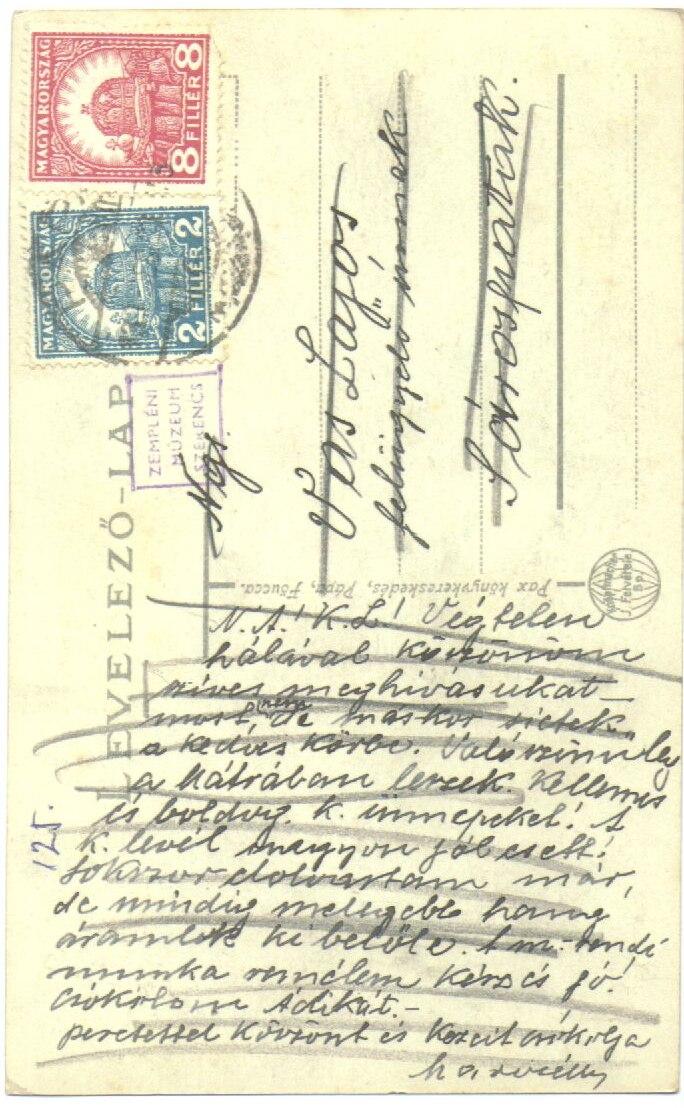 MAGYARORSZÁG
8 FILLÉR 8
MAGYARORSZÁG
2 FILLÉR 2
LEVELEZŐ-LAP
ZEMPLÉNI
MÚZEUM
SZERENCS
Ngs
Vas Lajos
felügyelő úrnak
Sárospatak.
Pax könyvkereskedés, Pápa, Főucca.
N. A.! K. L.! Végtelen
hálával köszönöm
szives meghivásukat
most nem de máskor sietek
a kedves körbe. Valószinüleg
a Mátrában leszek. Kellemes
és boldog k. ünnepeket! A
k. levél nagyon jól esett!
Sokszor elolvastam már,
de mindig melegebb hang
áramlik ki belőle. A
munka remélem kész és jó!
Csókolom Adikát.-
szeretettel köszönt és kezeit csókolja
125.